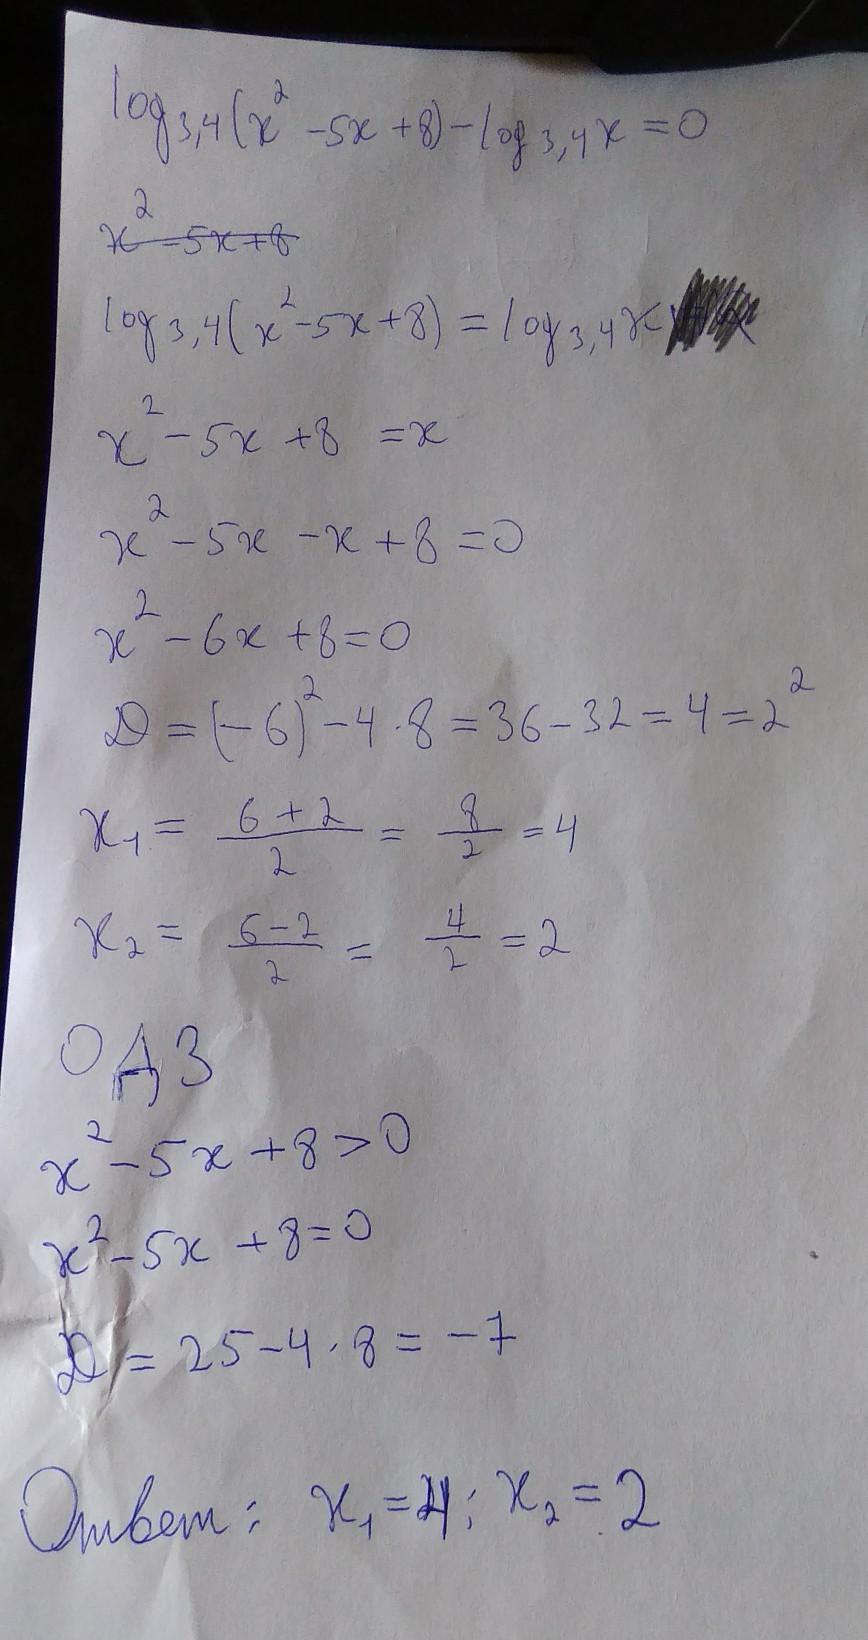 log₃,₄(x² -5x +8) - log₃,₄x = 0
x² -5x+8
log₃,₄(x²-5x+8) = log₃,₄x
x² -5x +8 =x
x² -5x -x +8 =0
x² -6x +8=0
D = (-6)² -4·8 = 36-32 = 4 = 2²
x₁ = (6+2)/2 = 8/2 = 4
x₂ = (6-2)/2 = 4/2 = 2
ОДЗ
x² -5x +8 > 0
x² -5x +8 = 0
D = 25-4·8 = -7
Ответ: x₁ = 4; x₂ = 2